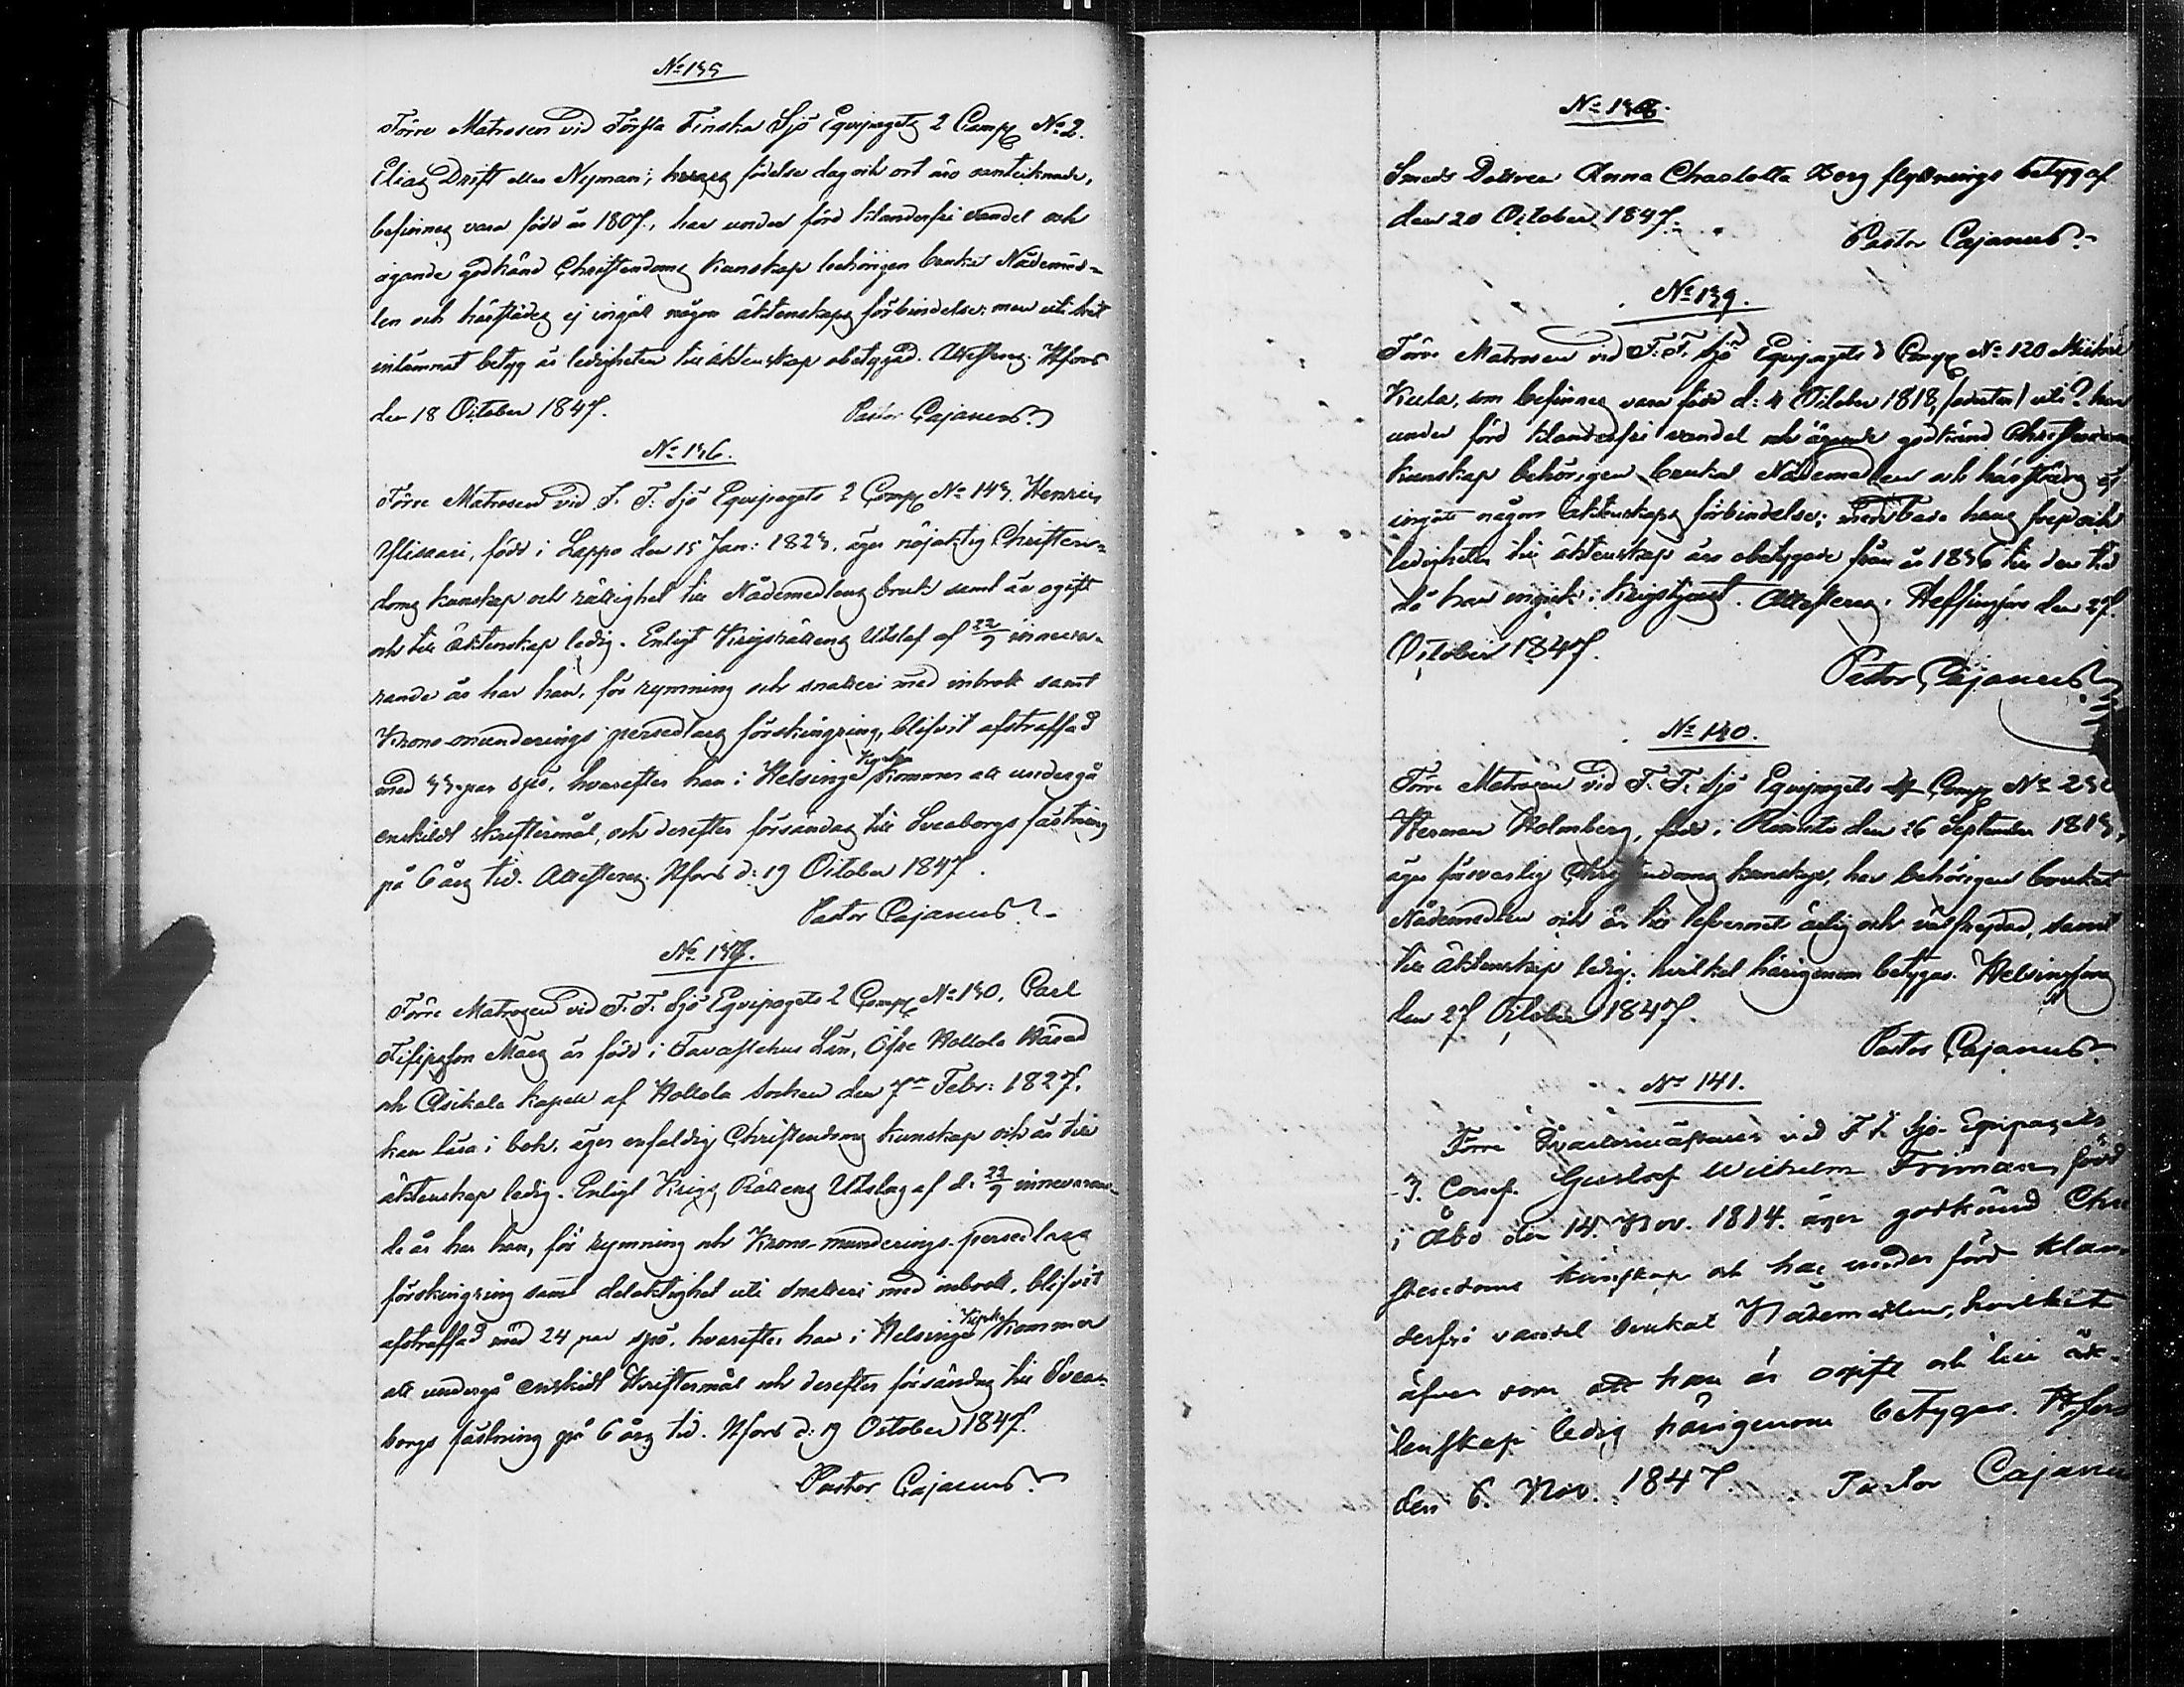 No 135
Förre Matrosen vid Första Finska Sjö Equipagets 2 Comp No 2.
Elias Drift eller Nyman, hvars födelse dag och ort äro oantecknade,
befinnes vara född år 1807, har under förd klanderfri vandel och
ägande godkänd Christendoms kunskap behörigen brukat Nådemed-
len och härstädes ej ingått någon äktenskaps förbindelse; men uti hit
inlämnat betyg är ledigheten till äktenskap obetygad. Attesteras. Hfors
den 18 October 1847. Pastor Cajanus
No 136.
Förre Matrosen vid F. F. Sjö Equipagets 2 Comp No 143. Henric
Ylisaari, född i Lappo den 15 Jan: 1823. äger nöjaktig Christen-
doms kunskap och rättighet till Nådemedlens bruk samt är ogift
och till äktenskap ledig. Enligt Krigsrättens Utslag af 22/9 inneva-
rande år har han, för rymning och snatteri med inbrott samt
Krono munderings persedlars förskingring, blifvit afstraffad
med 33 par spö, hvarefter han i Helsinge Kyrka kommer att undergå
enskildt skriftermål, och derefter försändas till Sveaborgs fästning
på 6 års tid. Attesteras. Hfors d: 19 October 1847.
Pastor Cajanus
No 137.
Förre Matrosen vid F. F. Sjö Equipagets 2 Comp No 130. Carl
Filipsson Mäes är född i Tavastehus Län, Öfre Hollola Härad
och Asikala kapell af Hollola Socken den 7de Febr: 1827.
kan läsa i bok, äger enfaldig Christendoms kunskap och är till
äktenskap ledig. Enligt Krigs Rättens Utslag af d. 22/9 innevaran-
de år har han, för rymning och Krono-munderings-persedlars
förskingring samt delaktighet uti snatteri med inbrott, blifvit
afstraffad med 24 par spö, hvarefter han i Helsinge Kyrka kommer
att undergå enskildt Skriftermål och derefter försändas till Svea-
borgs fästning på 6 års tid. Hfors d: 19 October 1847.
Pastor Cajanus
No 138.
Smeds Dottren Anna Charlotta Berg flyttnings betyg af
den 20 October 1847.
Pastor Cajanus
No 139.
Förre Matrosen vid F. F. Sjö Equipagets Comp No 120 Michel
Kula, som befinnes vara född d: 4 October 1818, uti? har
under förd klanderfri vandel och ägande godkänd Christendoms
kunskap behörigen brukat Nådemedlen och härstädes ej
ingått någon äktenskaps förbindelse; men hans frejd och
ledigheten till äktenskap äro obetygade från år 1836 till den tid
då han ingick i krigstjenst. Attesteras. Helsingfors den 27
October 1847.
Pastor Cajanus
No 140.
Förre Matrosen vid F. F. Sjö Equipagets Comp No
Herman Holmberg, född i Rimito den 26 September 1813,
äger försvarlig Christendoms kunskap, har behörigen brukat
Nådemedlen och är till lefvernet ärlig och välfrejdad, samt
till äktenskap ledig, hvilket härigenom betygas. Helsingfors
den 27 October 1847.
Pastor Cajanus
No 141.
Förre Qvartermästaren vid F. F. Sjö-Equipagets
3. Comp. Gustaf Wilhelm Friman, född
i Åbo den 14. Nov. 1814. äger godkänd Chri-
stendoms kunskap och har under förd klan-
derfri vandel brukat Nådemedlen, hvilket
äfven som att han är ogift och till äk-
tenskap ledig härigenom betygas. Hfors
den 6. Nov. 1847 Pastor Cajanus